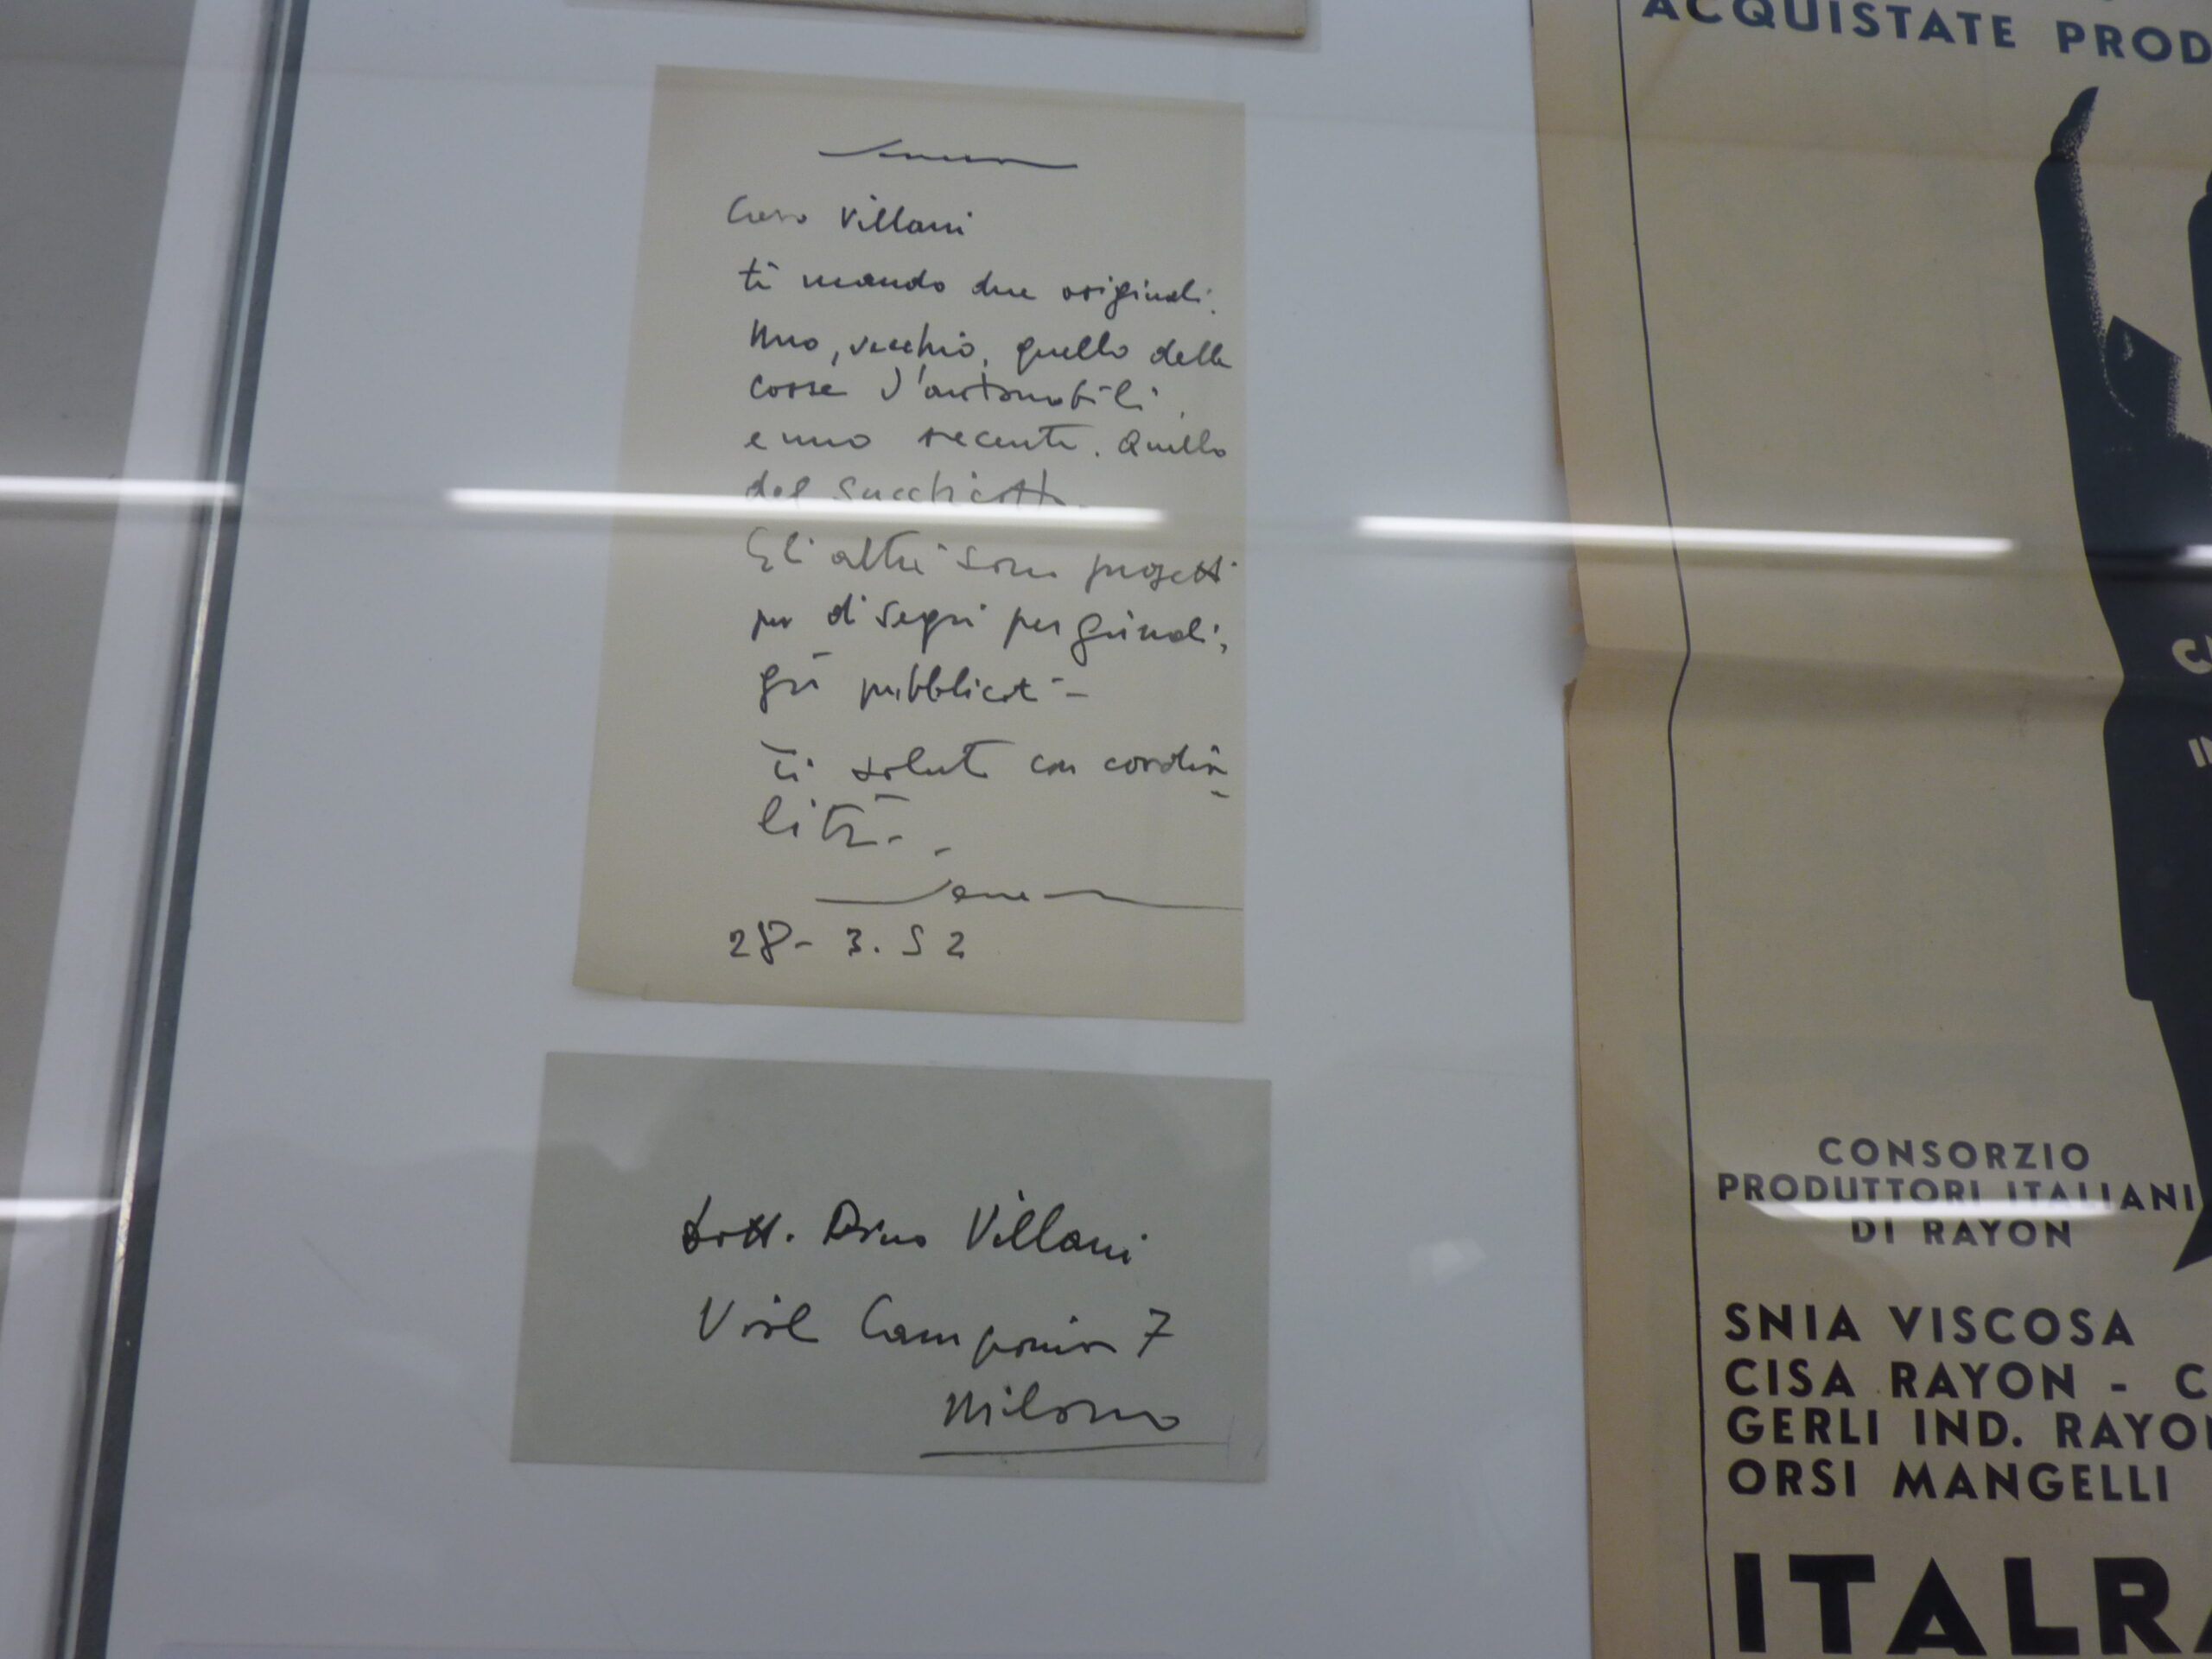 Caro Villani
ti mando due originali:
Uno, vecchio, quello delle
corse d'automobili,
e uno recente. Quello
del
Gli altri sono progetti
per disegni per giornali,
già pubblicati –
Ti saluto con cordia-
lità.
28 - 3. 52
Dott. Dino Villani
Viale Campania 7
Milano
ACQUISTATE PROD
CONSORZIO
PRODUTTORI ITALIANI
DI RAYON
SNIA VISCOSA
CISA RAYON - C
GERLI IND. RAYO
ORSI MANGELLI
ITALRA